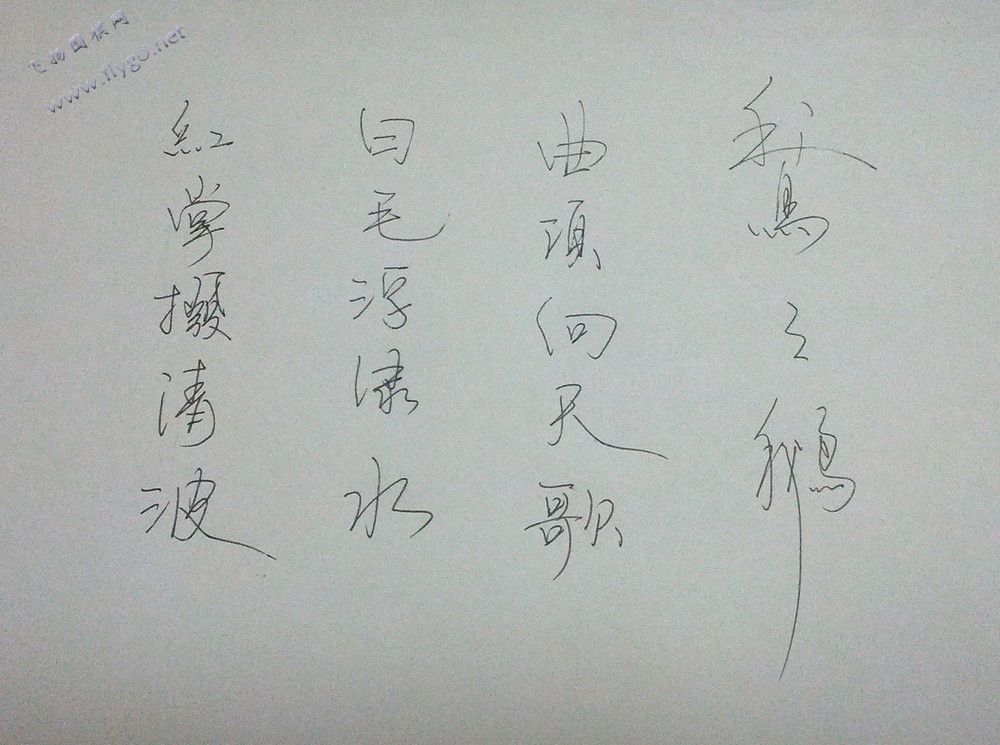 飞扬围棋网
www.flygo.net
鵞〻鵝
曲項向天歌
白毛浮渌水
紅掌撥清波